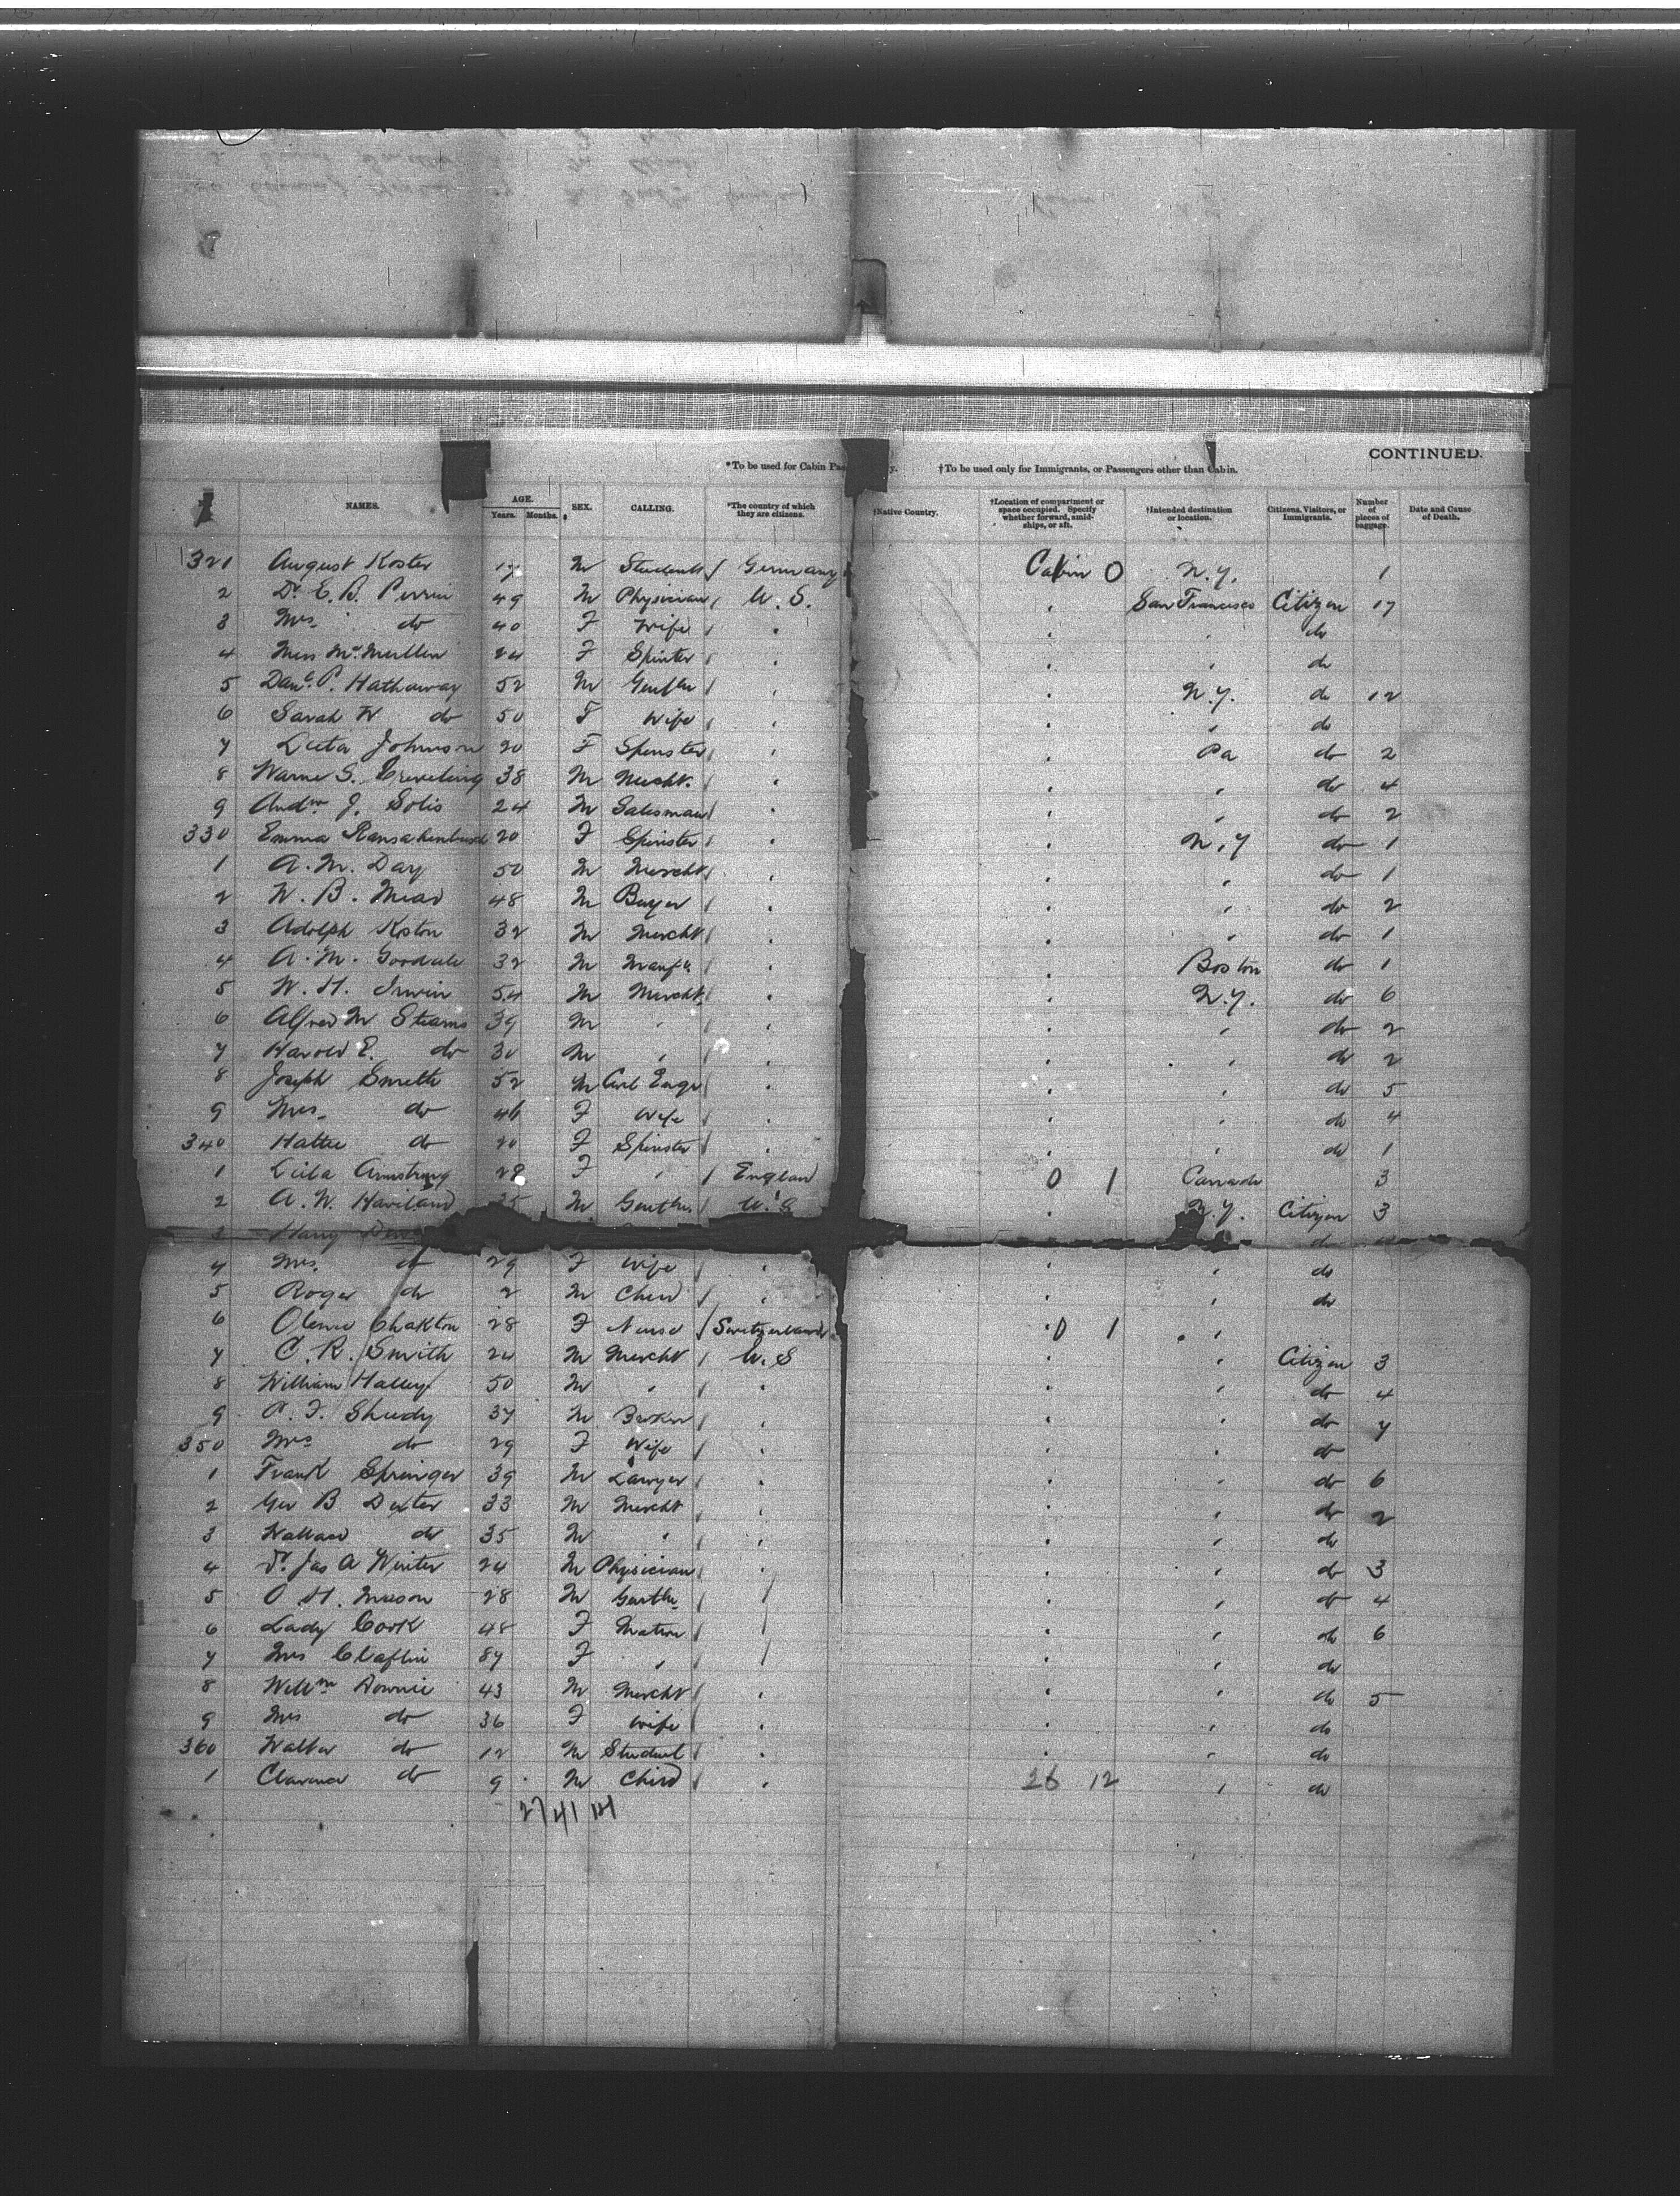 CONTINUED.
*To be used for Cabin Pas y. †To be used only for Immigrants, or Passengers other than Cabin.
NAMES. AGE. Years. Months. SEX. CALLING. *The country of which they are citizens. †Native Country. †Location of compartment or space occupied. Specify whether forward, amidships, or aft. †Intended destination or location. Citizens, Visitors, or Immigrants. Number of pieces of baggage. Date and Cause of Death.
321 August Koster 17 M Student / Germany Cabin 0 N.Y. 1
2 Dr. E. B. Perrin 49 M Physician / U.S. " San Francisco Citizen 17
3 Mrs. do 40 F Wife / " " " do
4 Miss McMullen 24 F Spinster / " " " do
5 Danl. P. Hathaway 52 M Gentln / " " N.Y. do 12
6 Sarah W do 50 F Wife / " " " do
7 Johnson 20 F Spinster / " " Pa do 2
8 S. 38 M Mercht. " " " do 4
9 J. Solis 24 M Salesman / " " " do 2
330 Emma 20 F Spinster / " " N.Y do 1
1 A. M. Day 50 M Mercht / " " " do 1
2 W. B. Mead 48 M Buyer / " " " do 2
3 Adolph 32 M Mercht / " " " do 1
4 A. M. Goodale 32 M / " " Boston do 1
5 W. H. Irwin 54 M Mercht. " " N.Y. do 6
6 Alfred M Stearns 39 M " " " " do 2
7 Harold E. do 30 M " " " " do 2
8 Joseph 52 M Civil Engr / " " " do 5
9 Mrs. do 46 F Wife / " " " do 4
340 Hattie do 20 F Spinster / " " " do 1
1 Armstrong 28 F " / England 0 1 Canada 3
2 A. W. Haviland 35 M Gentln. / U.S " N.Y. Citizen 3
3 Harry do
4 Mrs. do 29 F Wife / " " " do
5 Roger do 2 M Child / " " " do
6 28 F Nurse / Switzerland " 0 1 "
7 C. R. Smith 24 M Mercht / U.S " " Citizen 3
8 William Halley 50 M " / " " " do 4
9 P. F. 37 M / " " " do 7
350 Mrs do 29 F Wife / " " " do
1 Frank Springer 39 M Lawyer / " " " do 6
2 Geo B Dexter 33 M Mercht / " " " do 2
3 Wallace do 35 M " / " " " do
4 Dr. Jas A Winter 24 M Physician / " " " do 3
5 O. H. 28 M Gentln / " " do 4
6 Lady Cook 48 F / " " do 6
7 Mrs Claflin 84 F " / " " do
8 Willm Downie 43 M Mercht / " " " do 5
9 Mrs do 36 F Wife / " " " do
360 Walter do 12 M Student / " " " do
1 Clarence do 9 M Child / " 26 12 " do
27 41